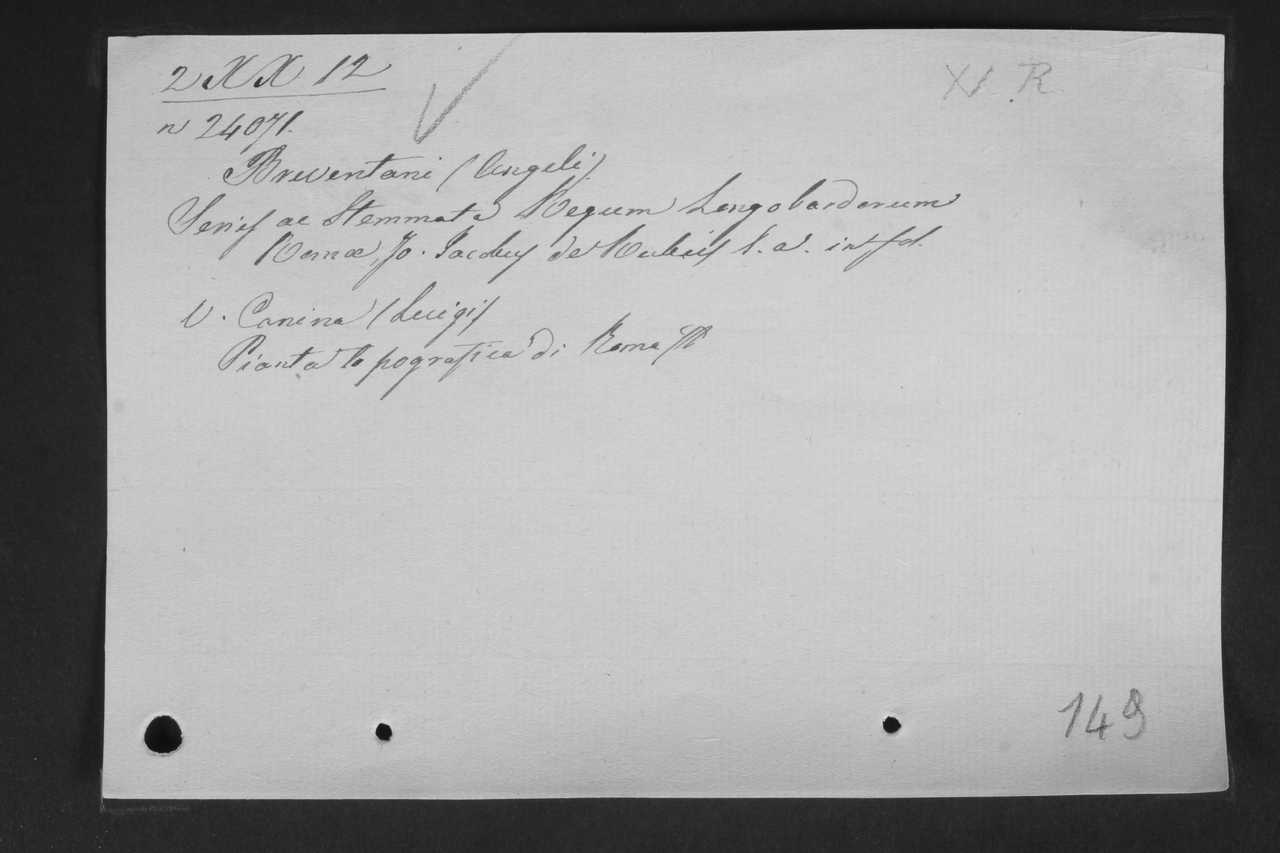 2 XX 12
XI R
n 24071.
Breventani (Angeli)
Series ac Stemmata Regum Longobardorum
Romæ, Jo. Jacobus de Rubeis s. a. in fol.
V. Canina (Luigi)
Pianta topografica di Roma
149